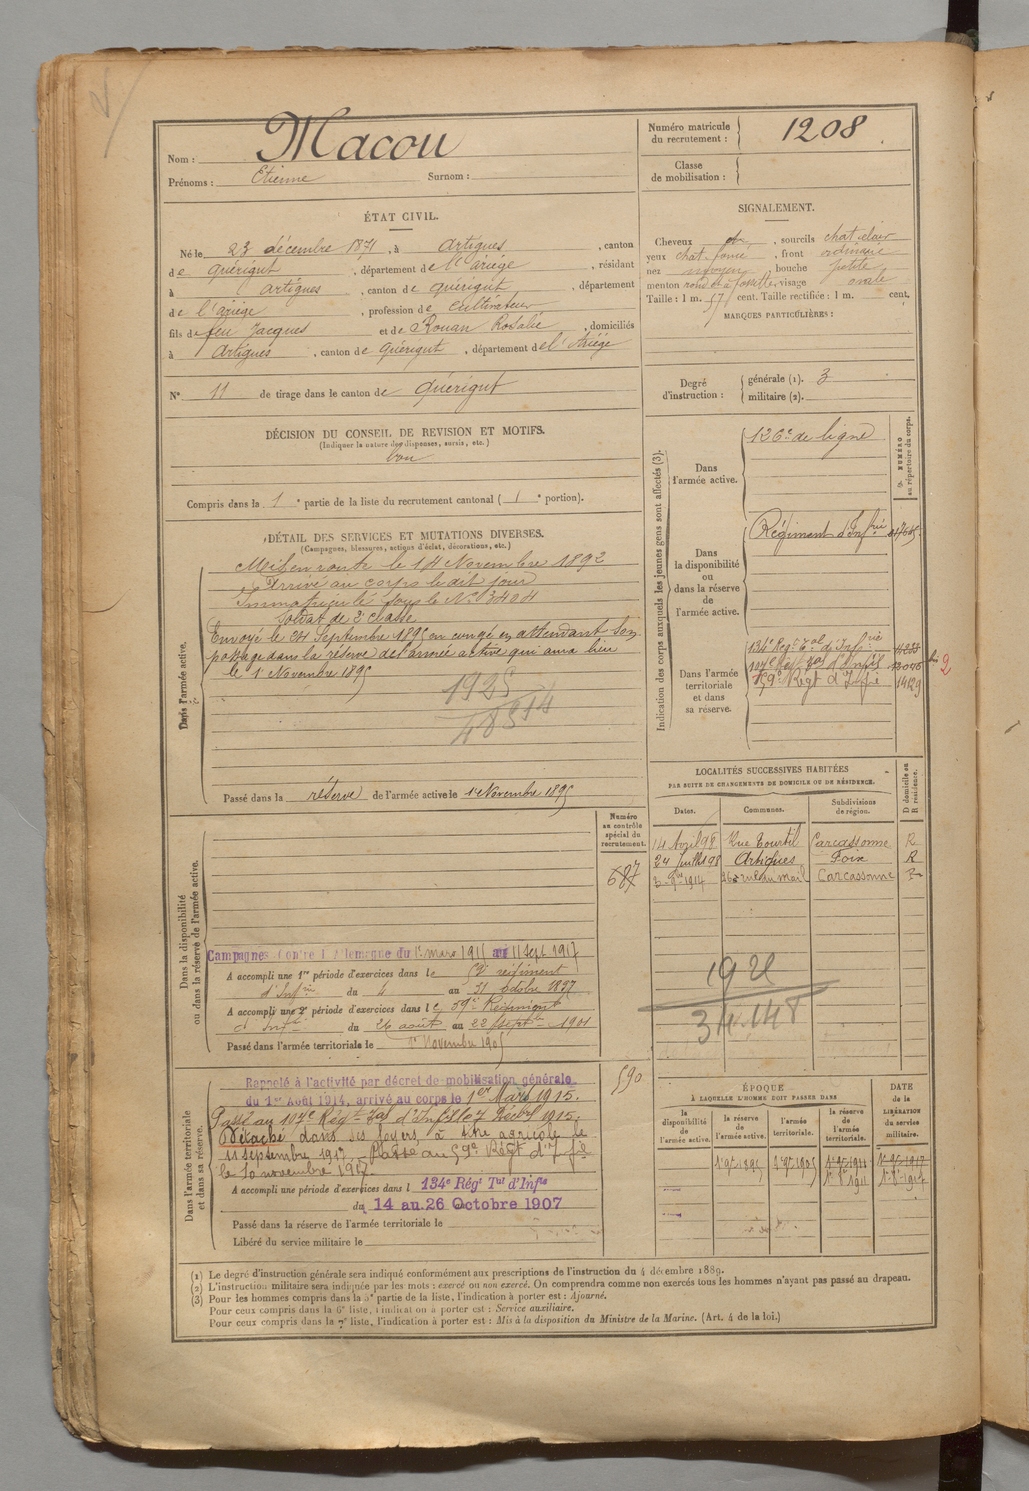 Nom : Macou
Prénoms : Etienne Surnom :
Numéro matricule du recrutement : 1208
Classe de mobilisation :
ÉTAT CIVIL.
Né le 23 décembre 1871, à Artigues, canton
de Quérigut, département de l'Ariège, résidant
à Artigues, canton de Quérigut, département
de l'ariège, profession de Cultivateur
fils de feu Jacques et de Rouan Rosalie, domiciliés
à Artigues, canton de Quérigut, département de l'Ariège
N° 11 de tirage dans le canton de Quérigut
SIGNALEMENT.
Cheveux , sourcils chat. clair
yeux chat. foncé, front ordinaire
nez moyen, bouche petite
menton rond et à fossette, visage ovale
Taille : 1 m. 57 cent. Taille rectifiée : 1 m. cent.
MARQUES PARTICULIÈRES :
Degré d'instruction : générale (1). 3
militaire (2).
DÉCISION DU CONSEIL DE REVISION ET MOTIFS.
(Indiquer la nature des dispenses, sursis, etc.)
bon
Compris dans la 1e partie de la liste du recrutement cantonal (1e portion).
DÉTAIL DES SERVICES ET MUTATIONS DIVERSES.
(Campagnes, blessures, actions d'éclat, décorations, etc.)
Dans l'armée active.
Mis en route le 14 Novembre 1892
Arrivé au corps le dit jour
Immatriculé sous le N° 3404
Soldat de 2e classe
Envoyé le 24 Septembre 1895 en congé en attendant son
passage dans la réserve de l'armée active qui aura lieu
le 1 Novembre 1895
1925
48514
Passé dans la réserve de l'armée active le 1er Novembre 1895
Indication des corps auxquels les jeunes gens sont affectés (3).
NUMÉRO au répertoire du corps.
Dans l'armée active.
126e de ligne
Dans la disponibilité ou dans la réserve de l'armée active.
Régiment d'Infrie
Dans l'armée territoriale et dans sa réserve.
134e Régt Tal d'Infrie
107e Régt Tal d'Inftie
59e Régt d'Infie 1429
2
LOCALITÉS SUCCESSIVES HABITÉES
PAR SUITE DE CHANGEMENTS DE DOMICILE OU DE RÉSIDENCE.
Dates. Communes. Subdivisions de région. D domicile ou R résidence.
14 Avril 98 Rue Courtil Carcassonne R
24 Juillet 98 Artigues Foix R
1914 rue du Mail Carcassonne R
1921
34.148
Numéro au contrôle spécial du recrutement.
687
Dans la disponibilité ou dans la réserve de l'armée active.
Campagnes Contre l'Allemagne du 1er mars 1915 au 11 Sept 1917
A accompli une 1re période d'exercices dans le régiment
d'Infrie du 4 au 31 Octobre 1897
A accompli une 2e période d'exercices dans le 59e Régiment
d'Inftie du 26 août au 22 Septbre 1901
Passé dans l'armée territoriale le 1er Novembre 1905
590
Dans l'armée territoriale et dans sa réserve.
Rappelé à l'activité par décret de mobilisation générale
du 1er Août 1914, arrivé au corps le 1er Mars 1915.
Passé au 107e Régt Tal d'Infie le 7 Décbre 1915.
Détaché dans ses foyers à titre agricole le
11 septembre 1917. Passé au 59e Régt d'Infie
le 10 novembre 1917
A accompli une période d'exercices dans l 134e Régt Tal d'Infie
du 14 au 26 Octobre 1907
Passé dans la réserve de l'armée territoriale le
Libéré du service militaire le
ÉPOQUE
À LAQUELLE L'HOMME DOIT PASSER DANS
la disponibilité de l'armée active. la réserve de l'armée active. l'armée territoriale. la réserve de l'armée territoriale.
DATE de la LIBÉRATION du service militaire.
1er 9bre 1895 1er 9bre 1905 1er 9bre 1911 1er 9bre 1917
1er 8bre 1911 1er 8bre 1917
(1) Le degré d'instruction générale sera indiqué conformément aux prescriptions de l'instruction du 4 décembre 1889.
(2) L'instruction militaire sera indiquée par les mots : exercé ou non exercé. On comprendra comme non exercés tous les hommes n'ayant pas passé au drapeau.
(3) Pour les hommes compris dans la 5e partie de la liste, l'indication à porter est : Ajourné.
Pour ceux compris dans la 6e liste, l'indication à porter est : Service auxiliaire.
Pour ceux compris dans la 7e liste, l'indication à porter est : Mis à la disposition du Ministre de la Marine. (Art. 4 de la loi.)